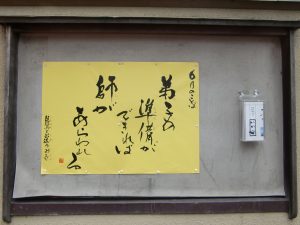 6月のことば
弟子の
準備が
できれば
師が
あらわれ
る